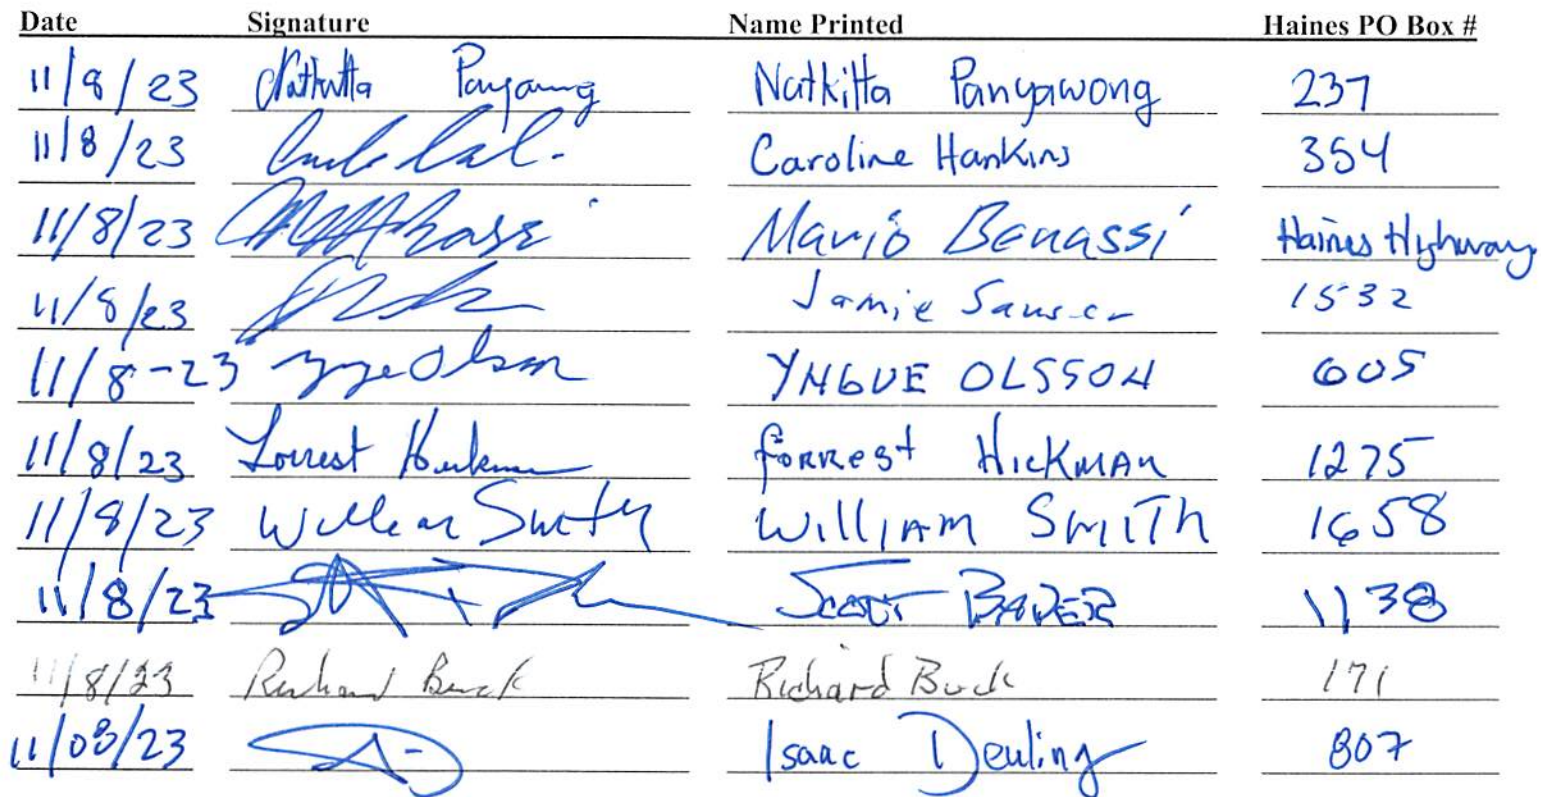 Date Signature Name Printed Haines PO Box #
11/8/23 Natkitta Panyawong Natkitta Panyawong 237
11/8/23 Caroline Hankins 354
11/8/23 Mario Benassi Haines Highway
11/8/23 Jamie Sauser 1532
11/8-23 Yngve Olsson YNGVE OLSSON 605
11/8/23 Forrest Hickman Forrest HICKMAN 1275
11/8/23 William Smith William Smith 1658
11/8/23 Scott BADER 1138
11/8/23 Richard Buck Richard Buck 171
11/08/23 Isaac Deuling 807